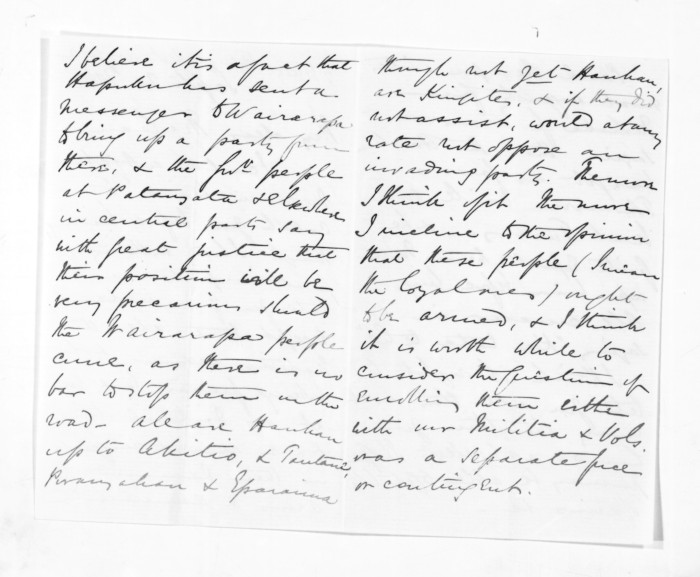 I believe it is a fact that
Hapuku has sent a
messenger to Wairarapa
to bring up a party from
there, & the Govt. people
at Patangata & elsewhere
in central parts say
with great justice that
their position will be
very precarious should
the Wairarapa people
come, as there is no
bar to stop them on the
road - all are Hauhau
up to Akitio, & Tautane,
Porangahau & Eparaima
though not yet Hauhau,
are Kingites, & if they did
not assist, would at any
rate not oppose an
invading party. The more
I think of it the more
I incline to the opinion
that these people (I mean
the loyal ones) ought
to be armed, & I think
it is worth while to
consider the question of
enrolling them either
with our Militia & Vols.
or as a separate force
or contingent.